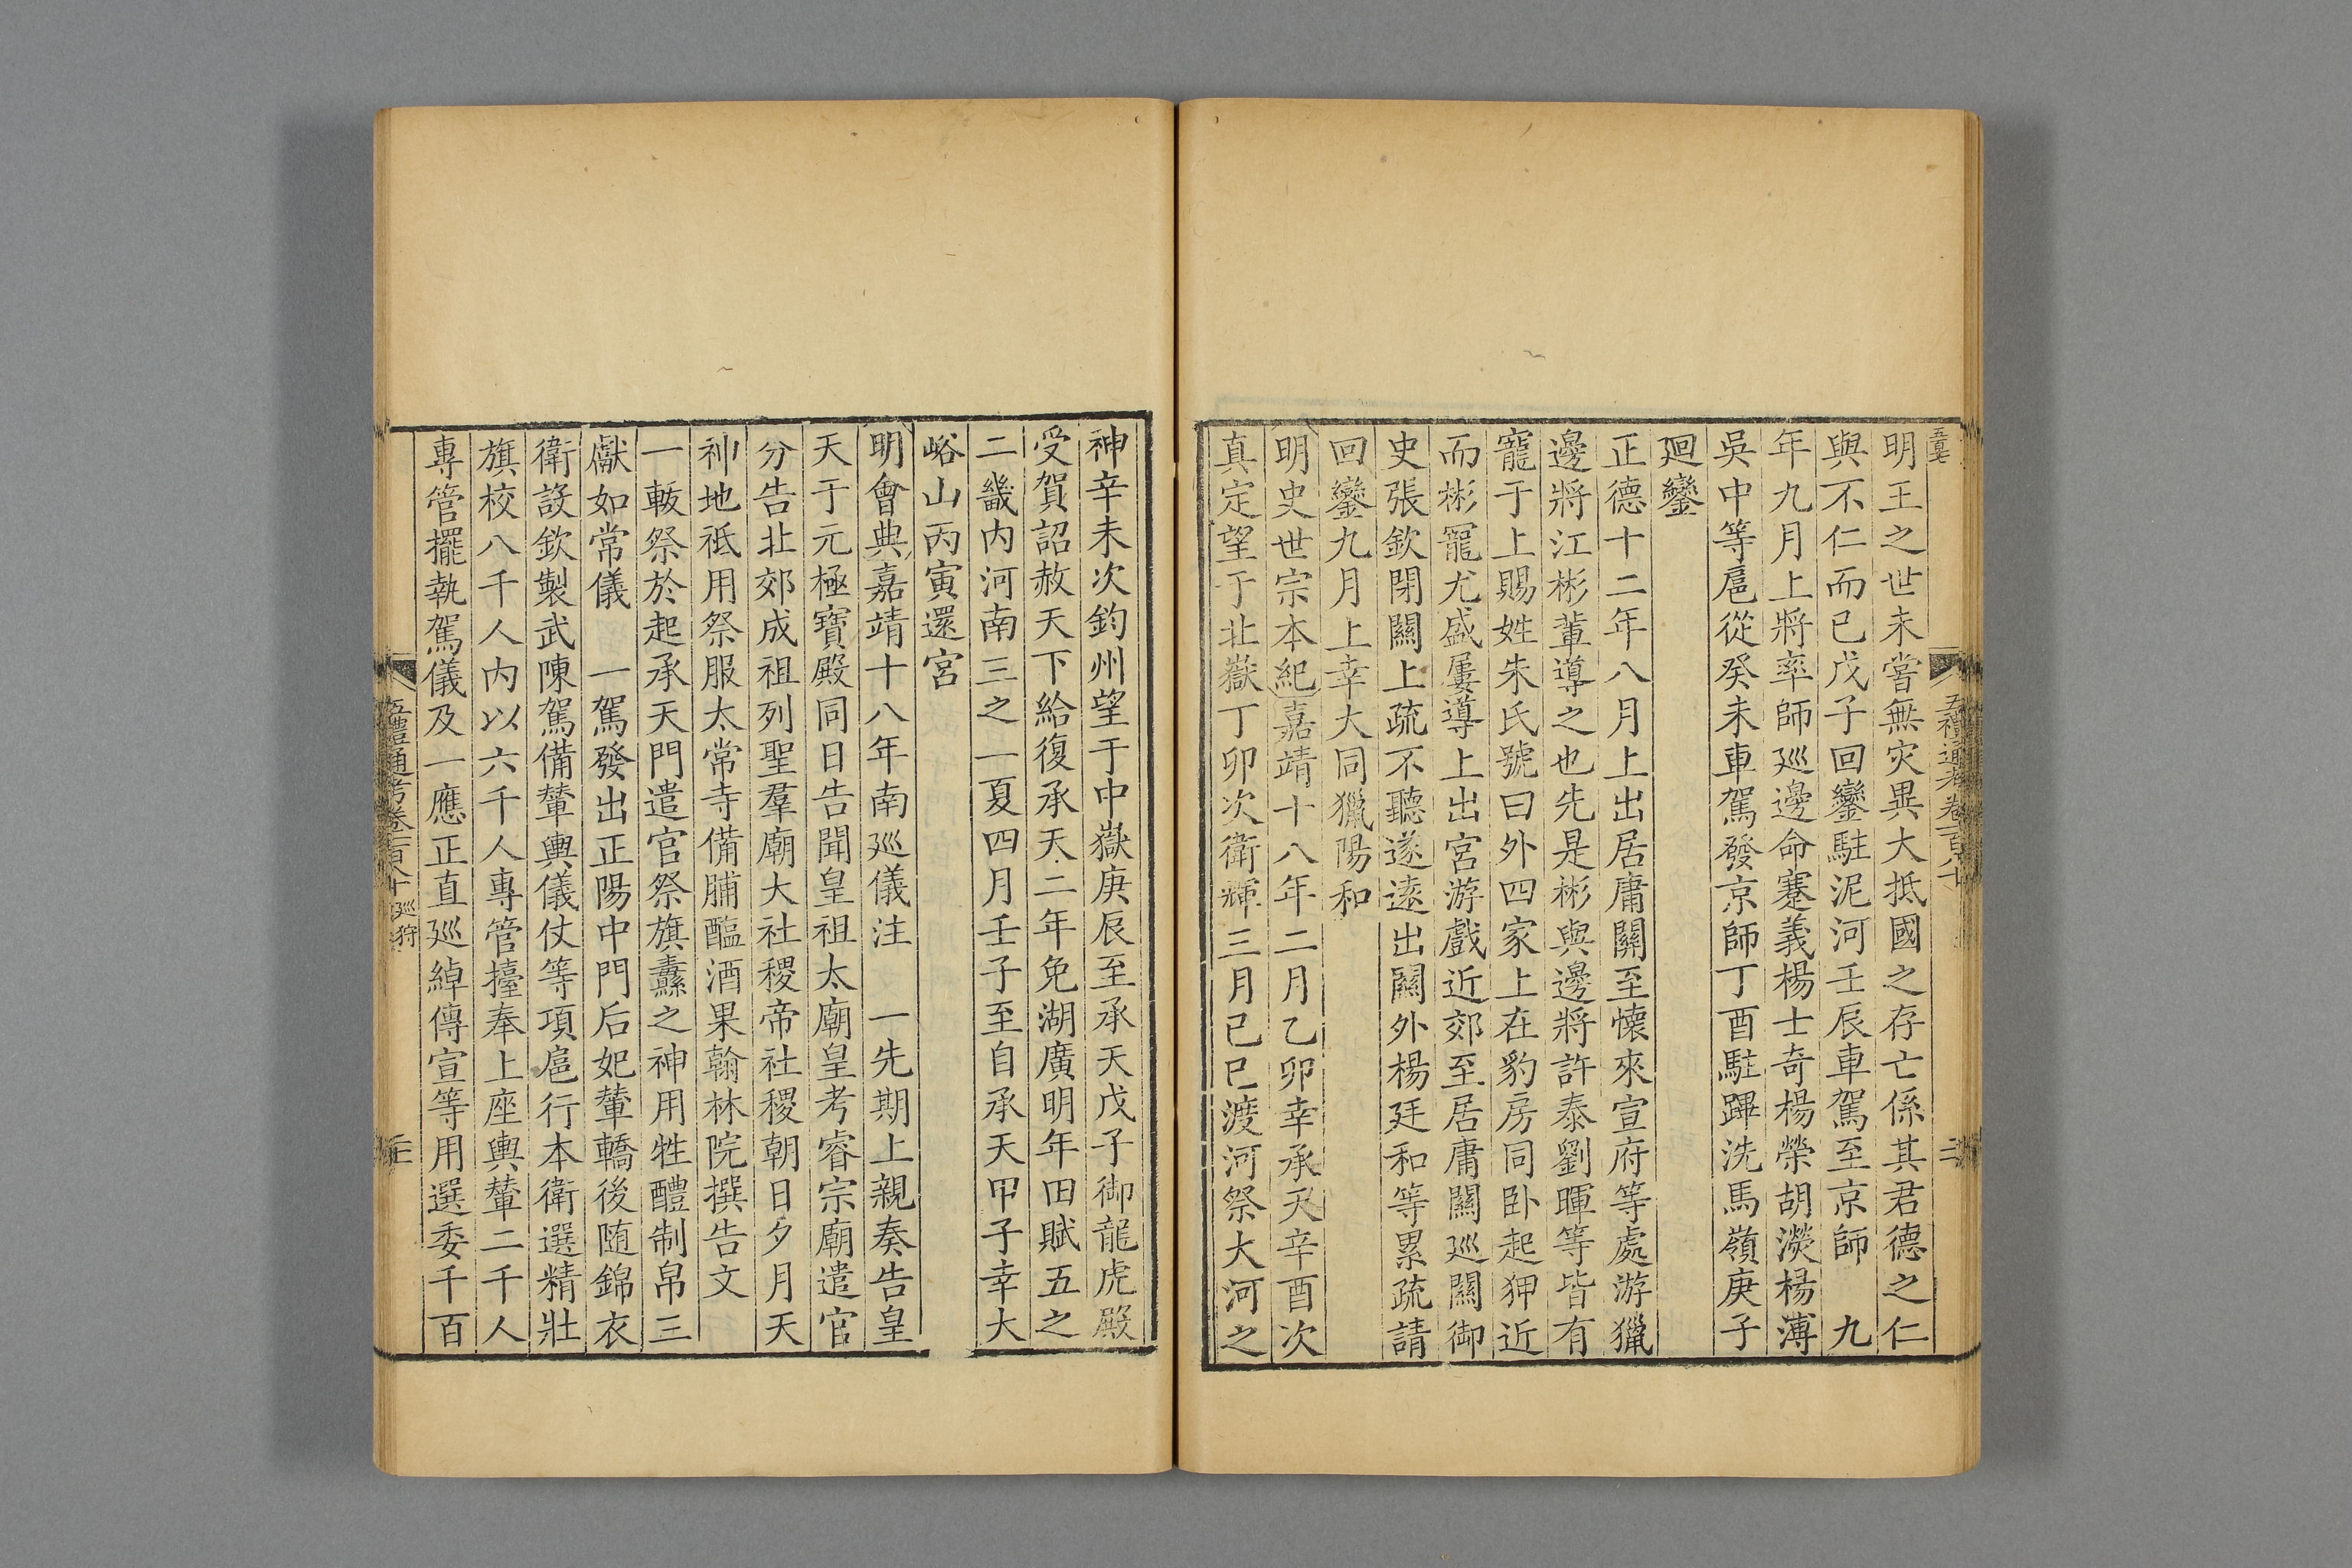 明王之世未嘗無灾異大抵國之存亡係其君德之仁
與不仁而已戊子回鑾駐泥河壬辰車駕至京師　九
年九月上將率師巡邊命蹇義楊士奇楊榮胡濙楊溥
吳中等扈從癸未車駕發京師丁酉駐蹕洗馬嶺庚子
廻鑾
正德十二年八月上出居庸關至懷來宣府等處游獵
邊將江彬輩導之也先是彬與邊將許泰劉暉等皆有
寵于上賜姓朱氏號曰外四家上在豹房同卧起狎近
而彬寵尤盛屢導上出宮游戲近郊至居庸關巡關御
史張欽閉關上疏不聽遂遠出關外楊廷和等累疏請
回鑾九月上幸大同獵陽和
明史世宗本紀嘉靖十八年二月乙卯幸承天辛酉次
真定望于北嶽丁卯次衛輝三月己巳渡河祭大河之
神辛未次鈞州望于中嶽庚辰至承天戊子御龍虎殿
受賀詔赦天下給復承天二年免湖廣明年田賦五之
二畿内河南三之一夏四月壬子至自承天甲子幸大
峪山丙寅還宮
明會典嘉靖十八年南巡儀注　一先期上親奏告皇
天于元極寶殿同日告聞皇祖太廟皇考睿宗廟遣官
分告北郊成祖列聖羣廟大社稷帝社稷朝日夕月天
神地祇用祭服太常寺備脯醢酒果翰林院撰告文
一軷祭於起承天門遣官祭旗纛之神用牲醴制帛三
獻如常儀　一駕發出正陽中門后妃輦轎後随錦衣
衛設欽製武陳駕備輦輿儀仗等項扈行本衛選精壯
旗校八千人内以六千人專管擡奉上座輿輦二千人
專管擺執駕儀及一應正直巡綽傳宣等用選委千百
五禮通考卷一百八十 巡狩